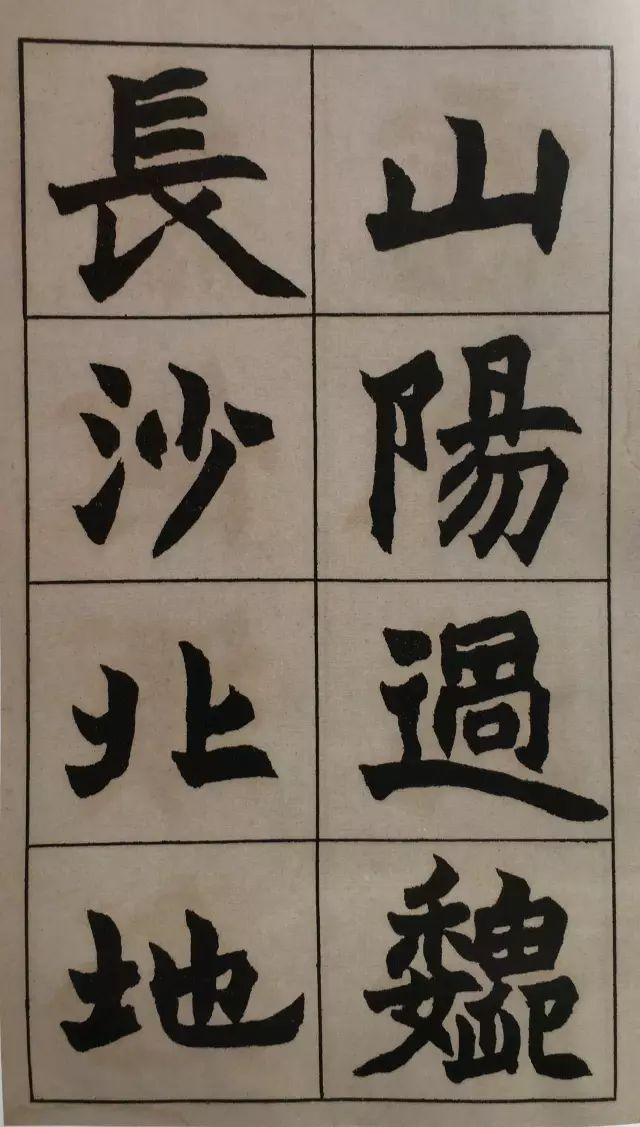 山陽過巍
長沙北地